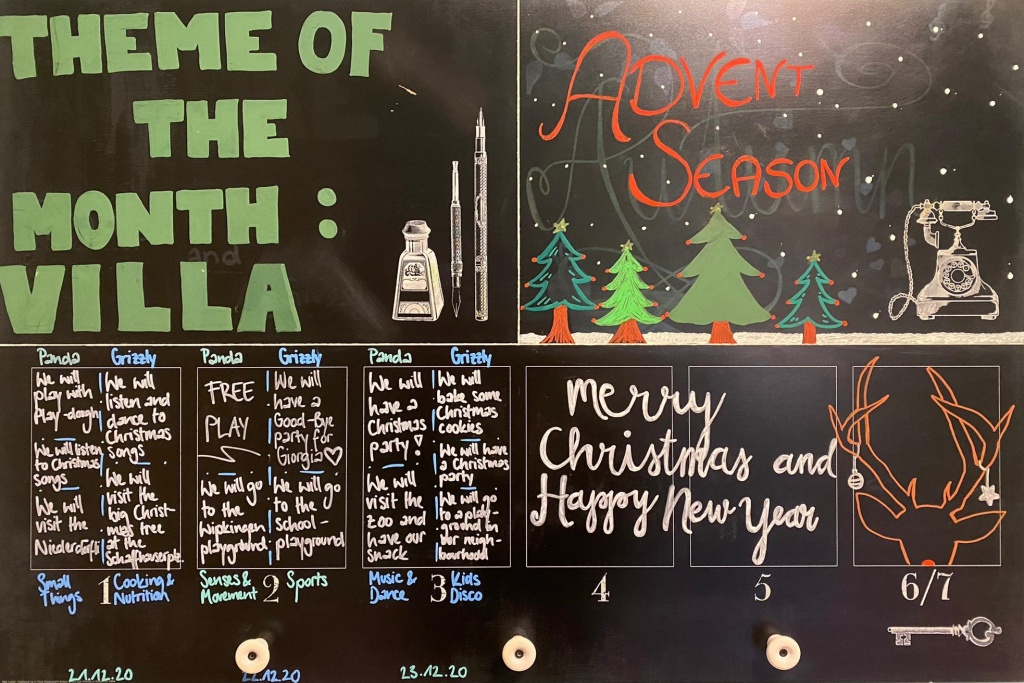 THEME OF
THE
MONTH :
VILLA
and
ADVENT
SEASON
Autumn
Panda
We will
play with
Play-dough
We will listen
to Christmas
songs
We will
visit the
Grizzly
We will
listen and
dance to
Christmas
songs
We will
visit the
big Christ-
mas tree
at the
Panda
FREE
PLAY
We will go
to the
Wipkingen
playground
Grizzly
We will
have a
Good-Bye
party for
Giorgia♡
We will go
to the
school-
playground
Panda
We will
have a
Christmas
party!
We will
visit the
zoo and
have our
snack
Grizzly
We will
bake some
Christmas
cookies
We will have
a Christmas
party
We will go
to a play-
ground in
our neigh-
bourhood
Merry
Christmas and
Happy New Year
Small
Things
1
Cooking &
Nutrition
Senses &
Movement
2
Sports
Music &
Dance
3
Kids
Disco
4
5
6/7
21.12.20
22.12.20
23.12.20